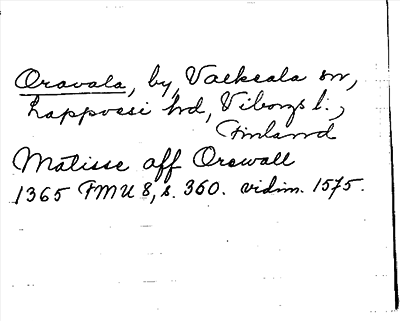 Oravala, by, Valkeala sn,
Lappvesi hd, Viborgs l.,
Finland
Matisse aff Orewall
1365 FMU 8, s. 360. vidim. 1575.